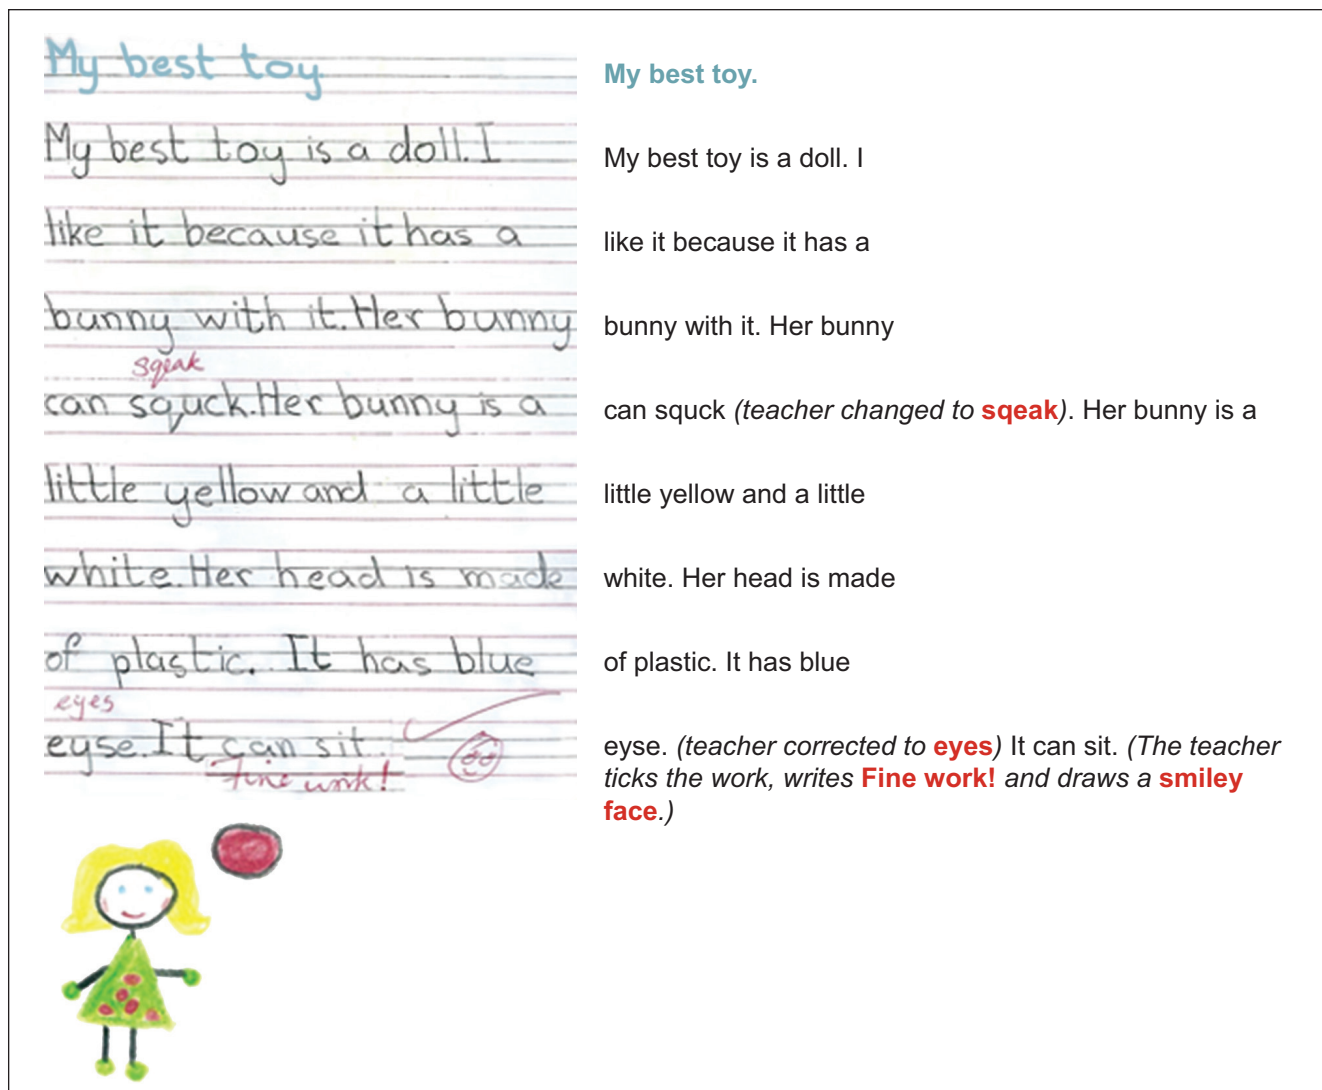 My best toy
My best toy is a doll. I
like it because it has a
bunny with it. Her bunny
sqeak
can squck. Her bunny is a
little yellow and a little
white. Her head is made
of plastic. It has blue
eyes
eyse. It can sit.
Fine work!
My best toy.
My best toy is a doll. I
like it because it has a
bunny with it. Her bunny
can squck (teacher changed to sqeak). Her bunny is a
little yellow and a little
white. Her head is made
of plastic. It has blue
eyse. (teacher corrected to eyes) It can sit. (The teacher
ticks the work, writes Fine work! and draws a smiley
face.)